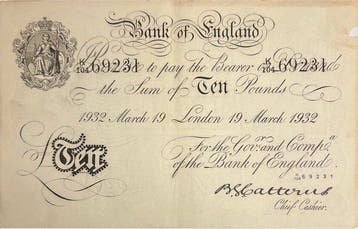 Bank of England
K/104 69231 to pay the Bearer K/104 69231
the Sum of Ten Pounds
1932 March 19 London 19 March 1932
For the Govr. and Compa.
of the Bank of England.
£Ten
69231
B G Catterns
Chief Cashier.